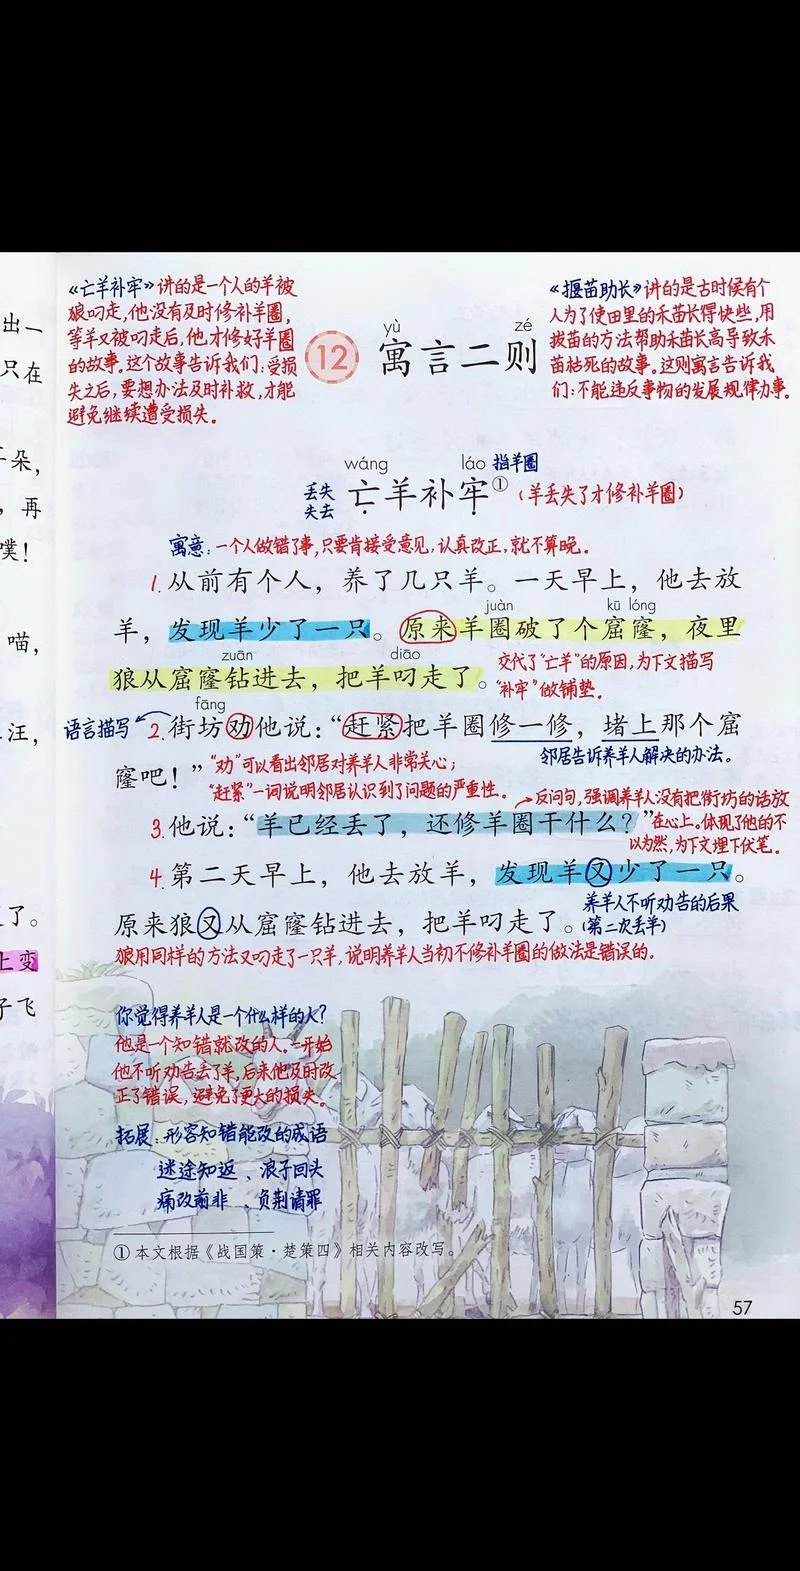 《亡羊补牢》讲的是一个人的羊被
狼叼走,他没有及时修补羊圈,
等羊又被叼走后,他才修好羊圈
的故事。这个故事告诉我们:受损
失之后,要想办法及时补救,才能
避免继续遭受损失。
yù zé
12 寓言二则
《揠苗助长》讲的是古时候有个
人为了使田里的禾苗长得快些,用
拔苗的方法帮助禾苗长高导致禾
苗枯死的故事。这则寓言告诉我
们:不能违反事物的发展规律办事。
出一
只在
朵,
,再
噗!
喵,
汪,
了。
上变
子飞
wáng láo 指羊圈
丢失
失去
亡羊补牢① (羊丢失了才修补羊圈)
寓意:一个人做错了事,只要肯接受意见,认真改正,就不算晚。
1.从前有个人,养了几只羊。一天早上,他去放
juàn kū lóng
羊,发现羊少了一只。原来羊圈破了个窟窿,夜里
zuān diāo
狼从窟窿钻进去,把羊叼走了。
交代了“亡羊”的原因,为下文描写
“补牢”做铺垫。
fāng
语言描写 2.街坊劝他说:“赶紧把羊圈修一修,堵上那个窟
邻居告诉养羊人解决的办法。
窿吧!”
“劝”可以看出邻居对养羊人非常关心;
“赶紧”一词说明邻居认识到了问题的严重性。
反问句,强调养羊人没有把街坊的话放
3.他说:“羊已经丢了,还修羊圈干什么?”
在心上。体现了他的不
以为然,为下文埋下伏笔。
4.第二天早上,他去放羊,发现羊又少了一只。
养羊人不听劝告的后果
(第二次丢羊)
原来狼又从窟窿钻进去,把羊叼走了。
狼用同样的方法又叼走了一只羊,说明养羊人当初不修补羊圈的做法是错误的。
你觉得养羊人是一个什么样的人?
他是一个知错就改的人。一开始
他不听劝告丢了羊,后来他及时改
正了错误,避免了更大的损失。
拓展:形容知错能改的成语
迷途知返、浪子回头
痛改前非、负荆请罪
①本文根据《战国策·楚策四》相关内容改写。
57